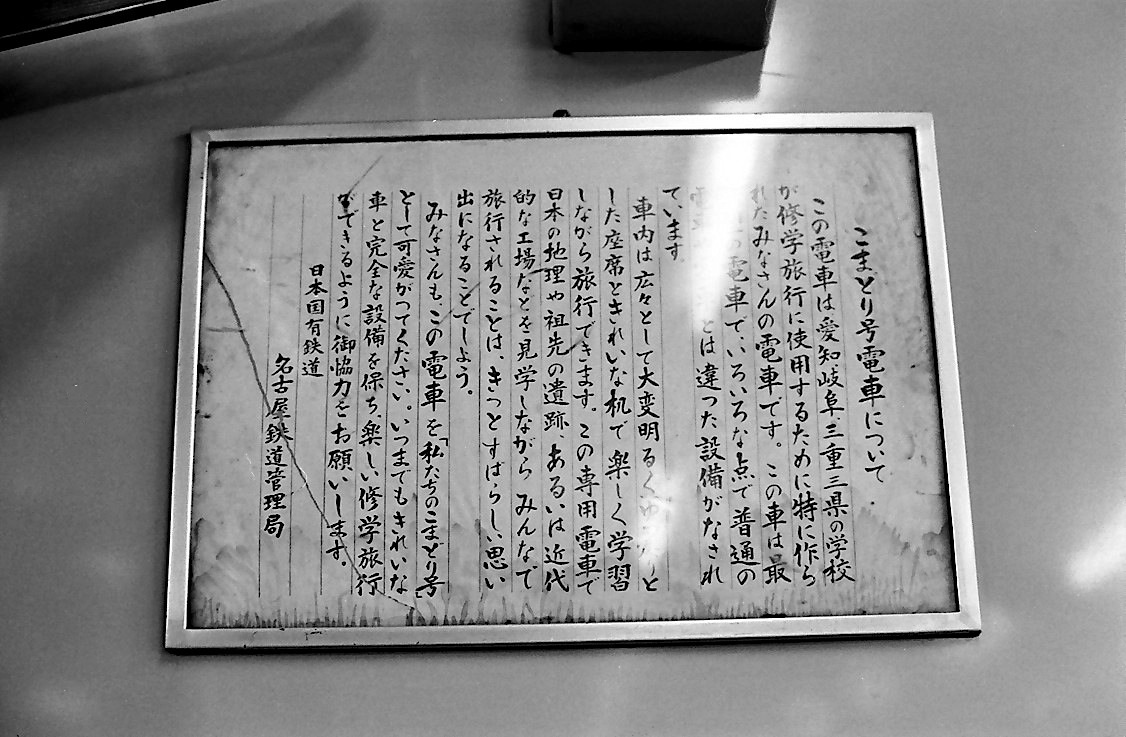 こまどり号電車について
この電車は愛知岐阜、三重三県の学校
が修学旅行に使用するために特に作ら
れたみなさんの電車です。この車は最
電車で、いろいろな点で普通の
電車とは違った設備がなされ
ています
車内は広々として大変明るくゆ と
した座席ときれいな机で楽しく学習
しながら旅行できます。この専用電車で
日本の地理や祖先の遺跡、あるいは近代
的な工場などを見学しながらみんなで
旅行されることは、きっとすばらしい思い
出になることでしょう。
みなさんも、この電車を「私たちのこまどり号」
として可愛がってください。いつまでもきれいな
車と完全な設備を保ち、楽しい修学旅行
ができるように御協力をお願いします。
日本国有鉄道
名古屋鉄道管理局